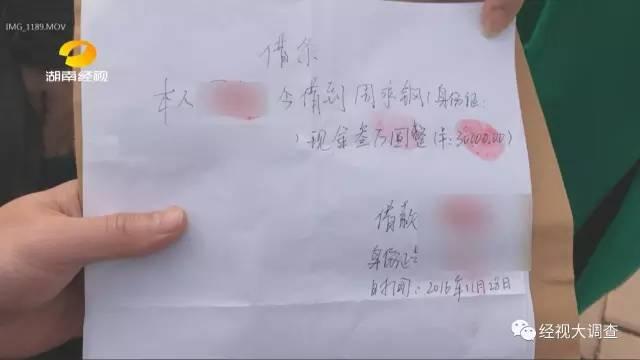 IMG_1189.MOV
湖南经视
借条
本人 今借到周 (身份证:
)现金叁万圆整(¥:30000.00)
借款
身份证号
日期:2016年11月28日
经视大调查